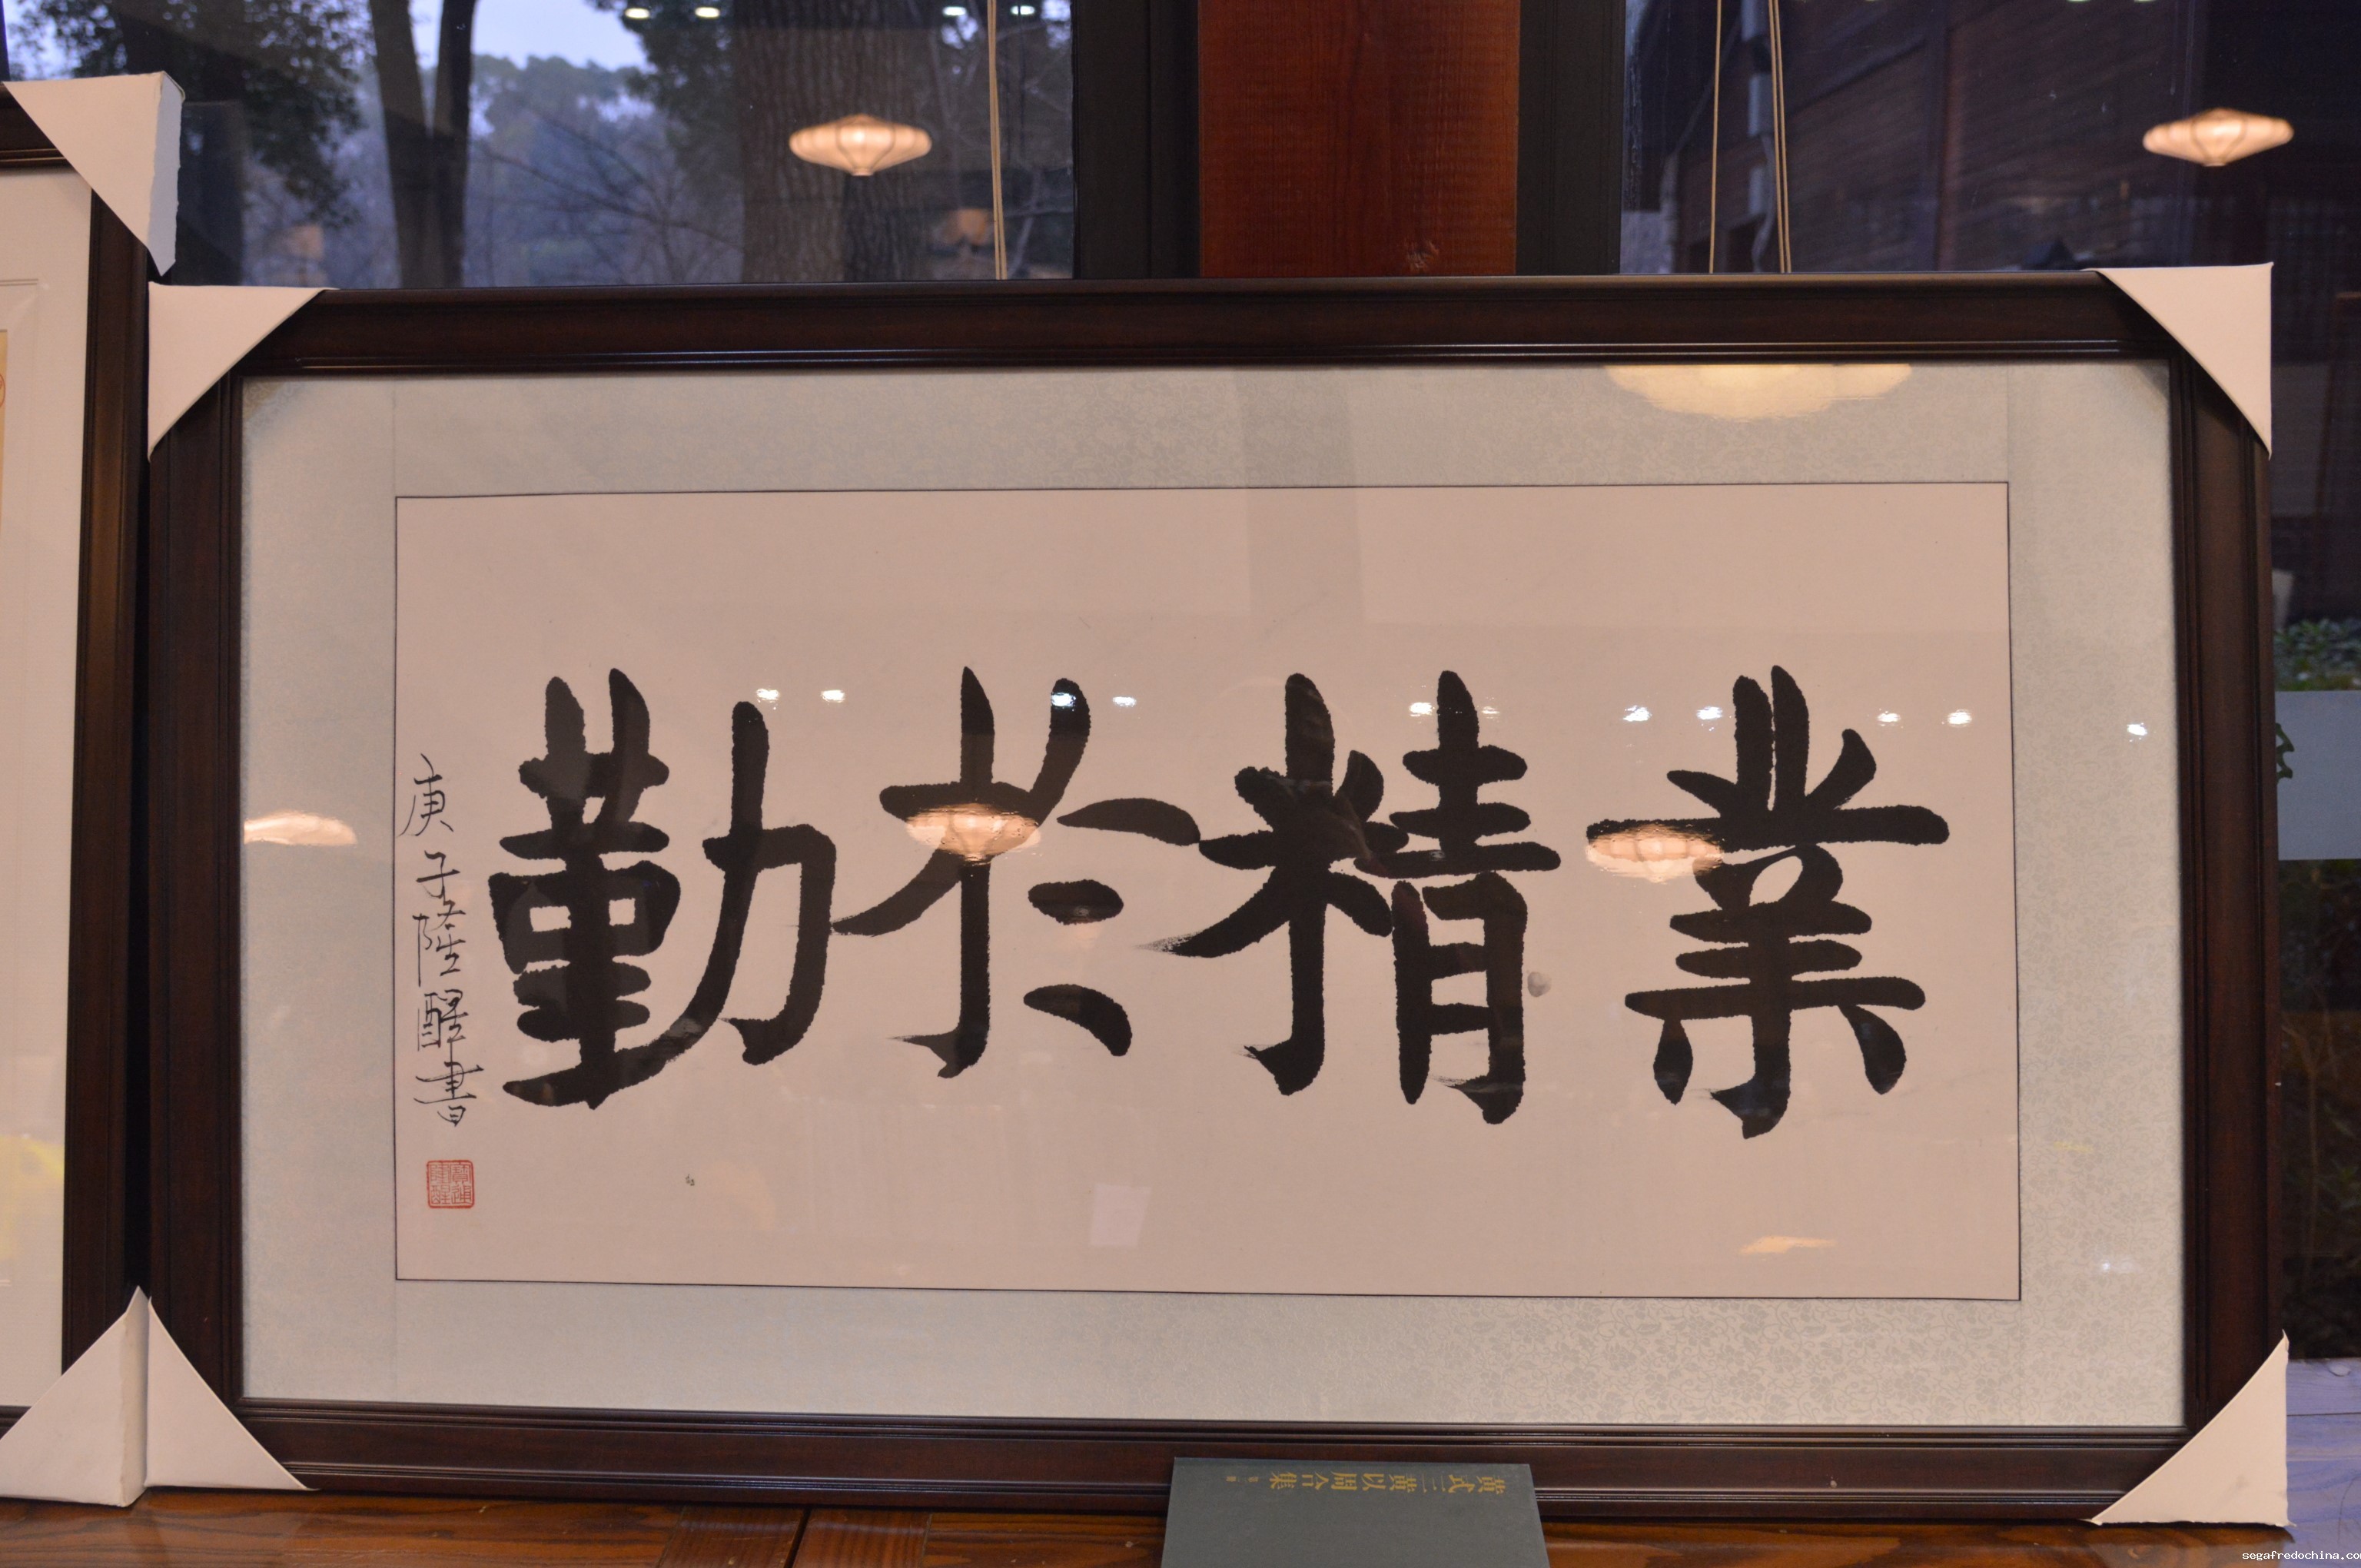 業精於勤
庚子隆醒書
黄式三黄以周合集
segafredochina.co